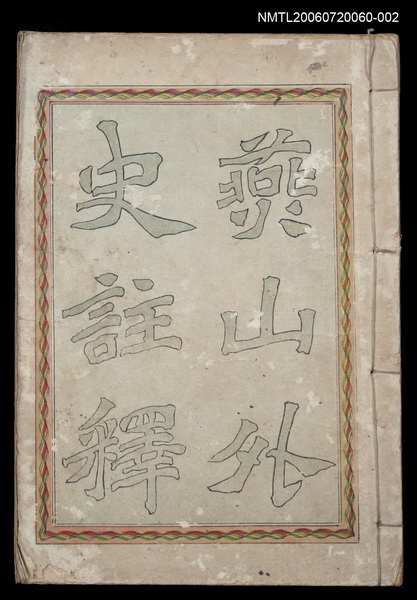 NMTL20060720060-002
燕山外
史註釋